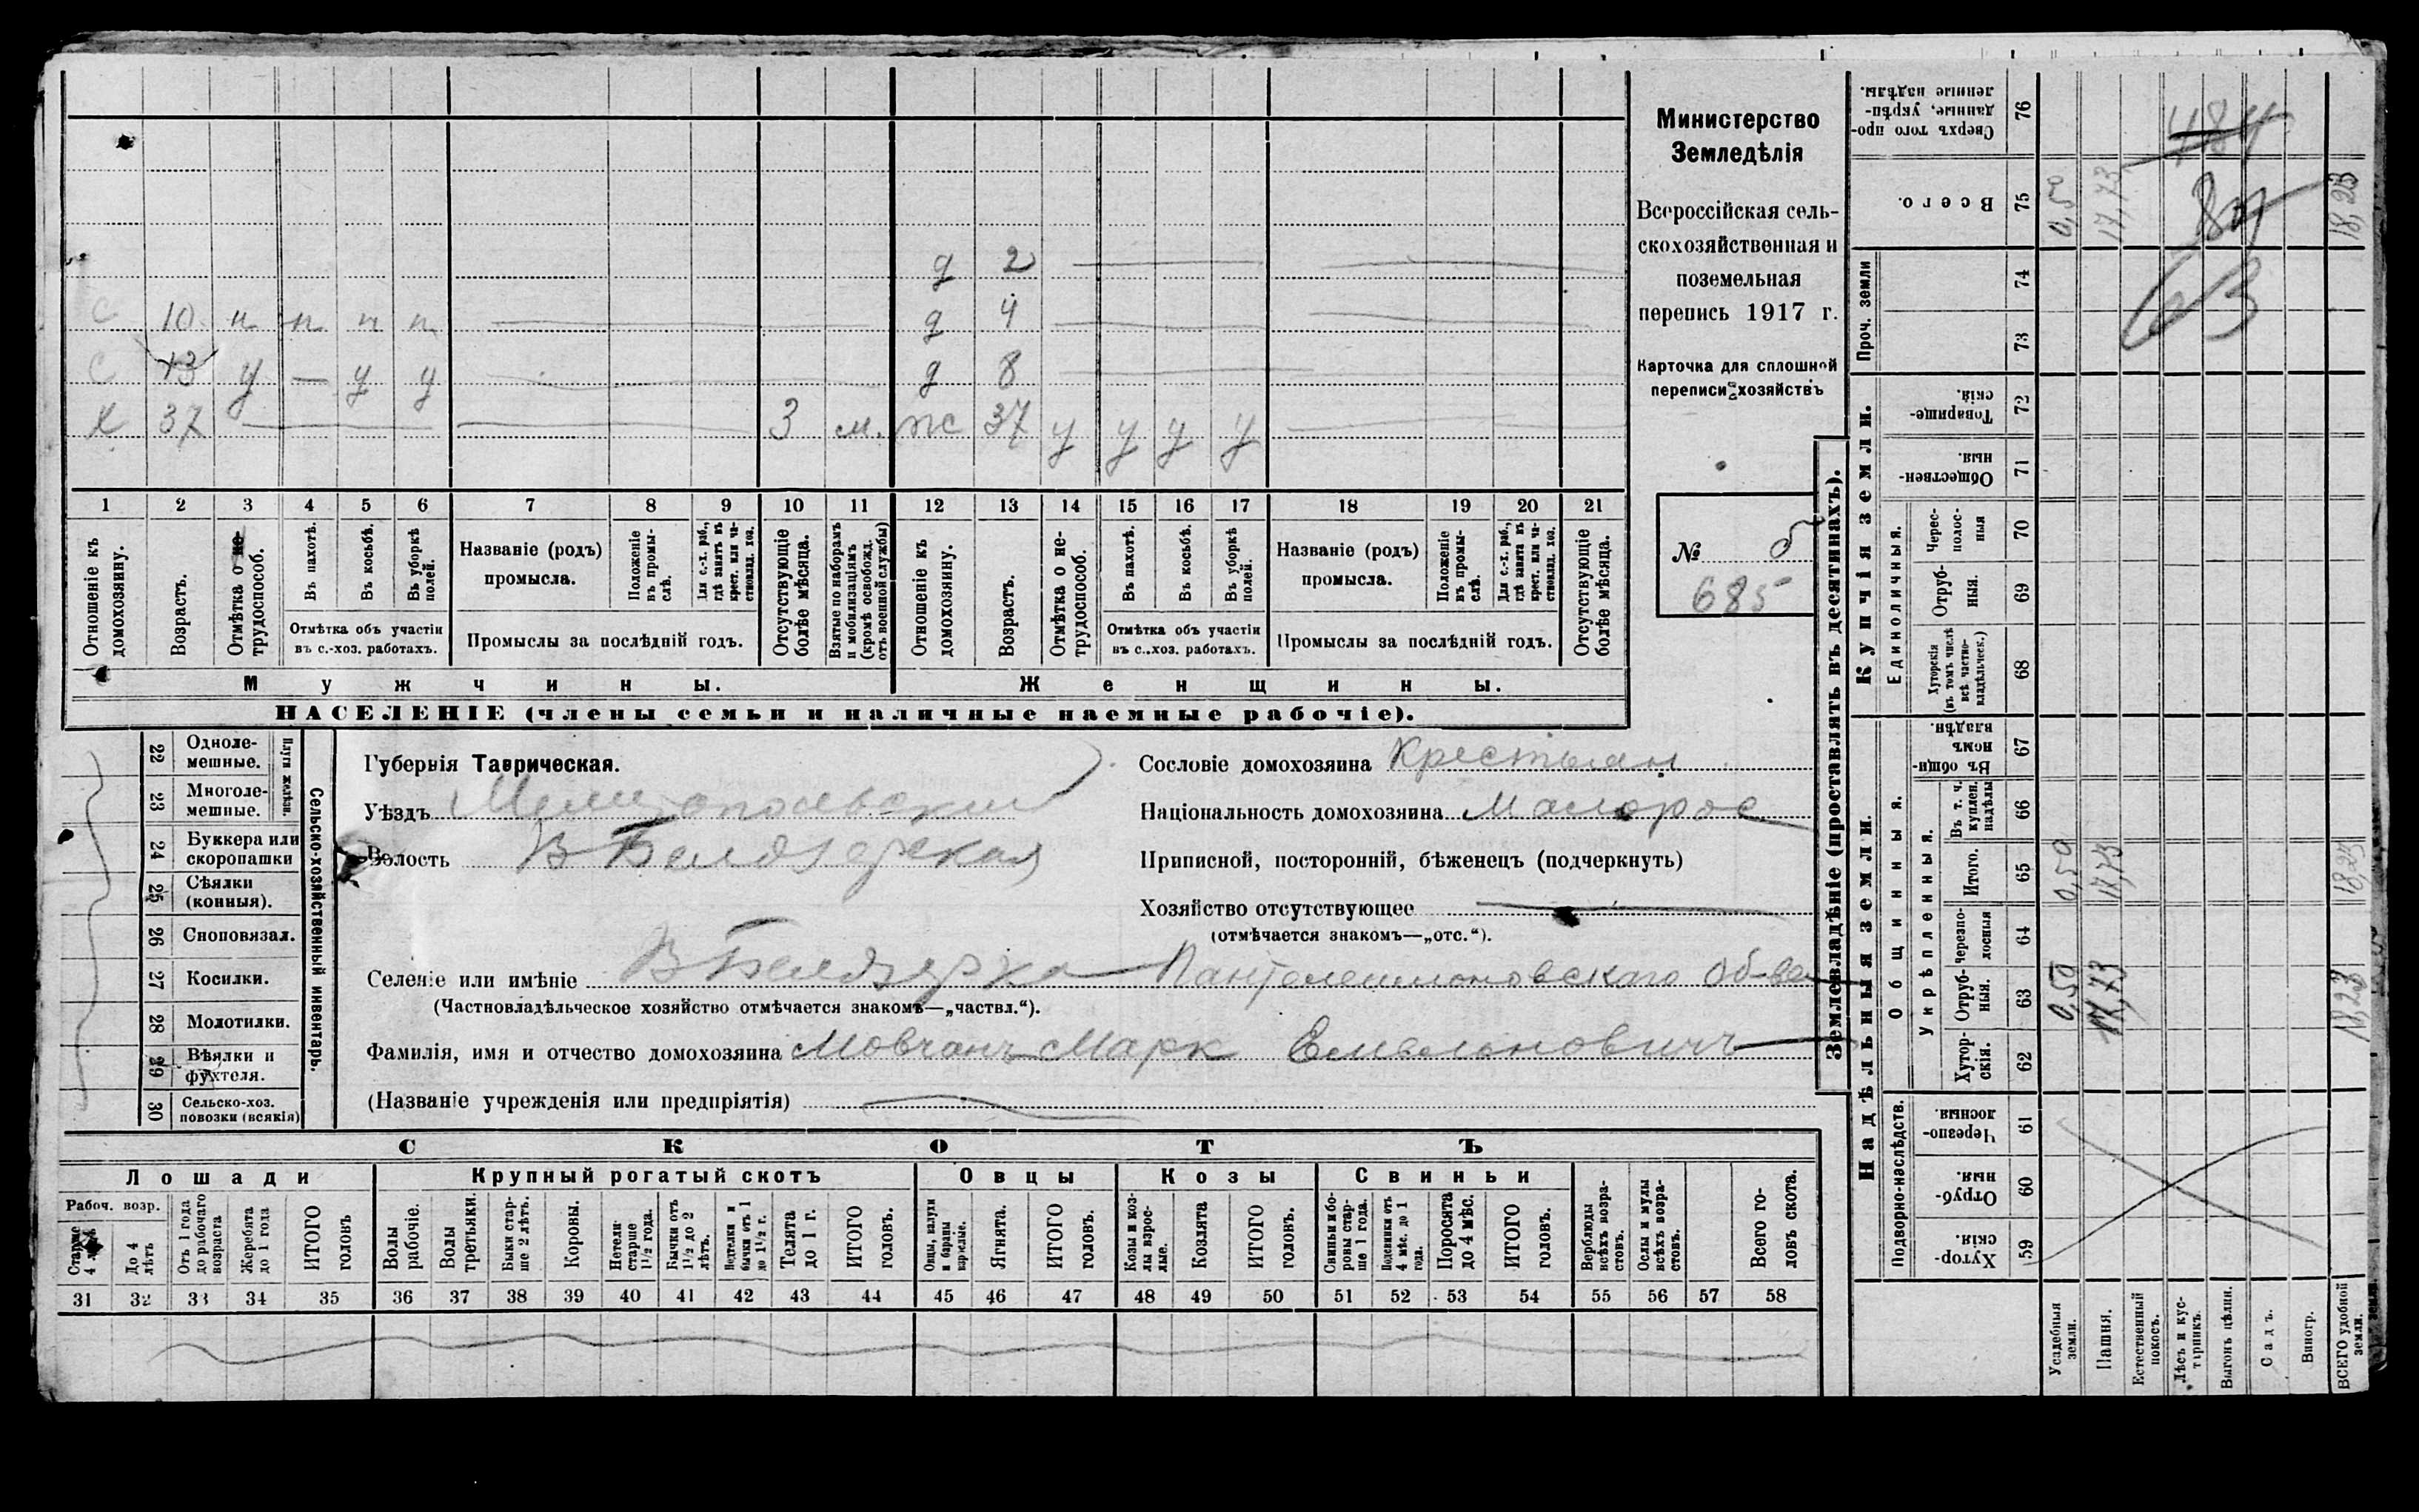 Министерство
Земледѣлія
Всероссійская сель-
скохозяйственная и
поземельная
перепись 1917 г.
Карточка для сплошной
переписи хозяйствъ
№ 5
685
д 2
С 10 н н н н д 4
С 13 у — у у д 8
Х 37 3 м. ж 37 у у у у
1 2 3 4 5 6 7 8 9 10 11 12 13 14 15 16 17 18 19 20 21
Отношеніе къ домохозяину.
Возрастъ.
Отмѣтка о не-трудоспособ.
Въ пахотѣ.
Въ косьбѣ.
Въ уборкѣ полей.
Отмѣтка объ участіи
въ с.-хоз. работахъ.
Названіе (родъ)
промысла.
Положеніе въ промы-слѣ.
Для с.-х. раб., гдѣ занятъ въ крест. или ча-стновлад. хоз.
Промыслы за послѣдній годъ.
Отсутствующіе болѣе мѣсяца.
Взятые по наборамъ и мобилизаціямъ (кромѣ освобожд. отъ военной службы)
Отношеніе къ домохозяину.
Возрастъ.
Отмѣтка о не-трудоспособ.
Въ пахотѣ.
Въ косьбѣ.
Въ уборкѣ полей.
Отмѣтка объ участіи
въ с.-хоз. работахъ.
Названіе (родъ)
промысла.
Положеніе въ промы-слѣ.
Для с.-х. раб., гдѣ занята въ крест. или ча-стновлад. хоз.
Промыслы за послѣдній годъ.
Отсутствующіе болѣе мѣсяца.
Мужчины. Женщины.
НАСЕЛЕНІЕ (члены семьи и наличные наемные рабочіе).
Сельско-хозяйственный инвентарь.
Плуги желѣзн.
22 Одноле-мешные.
23 Многоле-мешные.
24 Буккера или скоропашки
25 Сѣялки (конныя).
26 Сноповязал.
27 Косилки.
28 Молотилки.
29 Вѣялки и фухтеля.
30 Сельско-хоз. повозки (всякія)
Губернія Таврическая.
Уѣздъ Мелитопольскій
Волость В Белозерская
Сословіе домохозяина Крестьян
Національность домохозяина Малорос
Приписной, посторонній, бѣженецъ (подчеркнуть)
Хозяйство отсутствующее
(отмѣчается знакомъ—„отс.“).
Селеніе или имѣніе В Белозерка Пантелеимоновскаго Об-ва
(Частновладѣльческое хозяйство отмѣчается знакомъ—„частвл.“).
Фамилія, имя и отчество домохозяина Мовчанъ Марк Емельяновичъ
(Названіе учрежденія или предпріятія)
СКОТЪ
Лошади Крупный рогатый скотъ Овцы Козы Свиньи
Рабоч. возр.
Старше 4 лѣтъ
До 4 лѣтъ
Отъ 1 года до рабочаго возраста
Жеребята до 1 года
ИТОГО головъ
Волы рабочіе.
Волы третьяки.
Быки стар-ше 2 лѣтъ.
Коровы.
Нетели старше 1½ года.
Бычки отъ 1½ до 2 лѣтъ.
Нетелки и бычки отъ 1 до 1½ г.
Телята до 1 г.
ИТОГО головъ.
Овцы, валухи и бараны взрослые.
Ягнята.
ИТОГО головъ.
Козы и коз-лы взрос-лые.
Козлята
ИТОГО головъ.
Свиньи и бо-ровы стар-ше 1 года.
Подсвинки отъ 4 мѣс. до 1 года.
Поросята до 4 мѣс.
ИТОГО головъ.
Верблюды всѣхъ возра-стовъ.
Ослы и мулы всѣхъ возра-стовъ.
Всего го-ловъ скота.
31 32 33 34 35 36 37 38 39 40 41 42 43 44 45 46 47 48 49 50 51 52 53 54 55 56 57 58
Землевладѣніе (проставлять въ десятинахъ).
Надѣльныя земли. Купчія земли.
Проч. земли
Подворно-наслѣдств.
Общинныя.
Укрѣпленныя.
Единоличныя.
Сверхъ того про-данные, укрѣп-ленные надѣлы. 76
Всего. 75 0,50 17,73 18,23
74
73
Товарище-скія. 72
Обществен-ныя. 71
Черес-полос-ныя 70
Отруб-ныя. 69
Хуторскія (въ томъ числѣ всѣ частно-владѣльческ.) 68
Въ общин-номъ владѣн. 67
Въ т. ч. куплен. надѣлы 66
Итого. 65 0,50 17,73 18,23
Черезпо-лосныя 64
Отруб-ныя. 63 0,50 17,73 18,23
Хутор-скія. 62
Черезпо-лосныя. 61
Отруб-ныя. 60
Хутор-скія. 59
Усадебныя земли.
Пашня.
Естественный покосъ.
Лѣсъ и кус-тарникъ.
Выгонъ цѣлин.
Садъ.
Виногр.
ВСЕГО удобной земли.
63